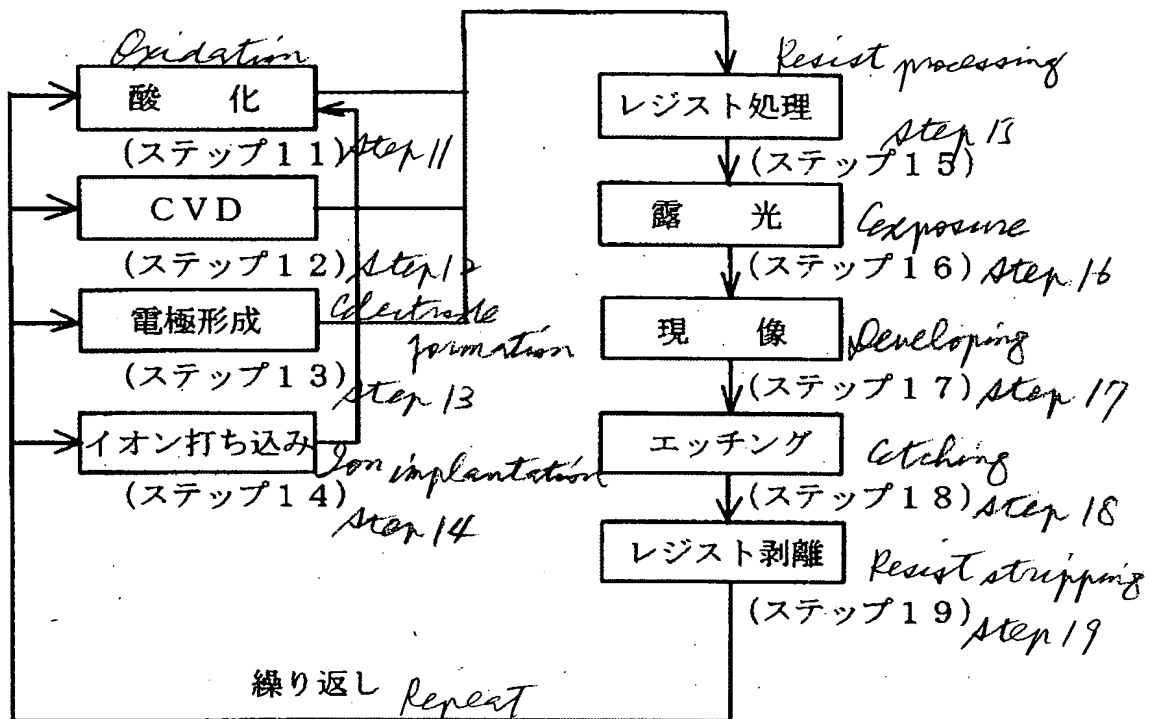 Oxidation
酸 化
(ステップ11) Step 11
CVD
(ステップ12) Step 12
電極形成 Electrode
formation
(ステップ13)
Step 13
イオン打ち込み Ion implantation
(ステップ14)
Step 14
Resist processing
レジスト処理
Step 15
(ステップ15)
露 光 Exposure
(ステップ16) Step 16
現 像 Developing
(ステップ17) Step 17
エッチング Etching
(ステップ18) Step 18
レジスト剥離 Resist stripping
(ステップ19) Step 19
繰り返し Repeat